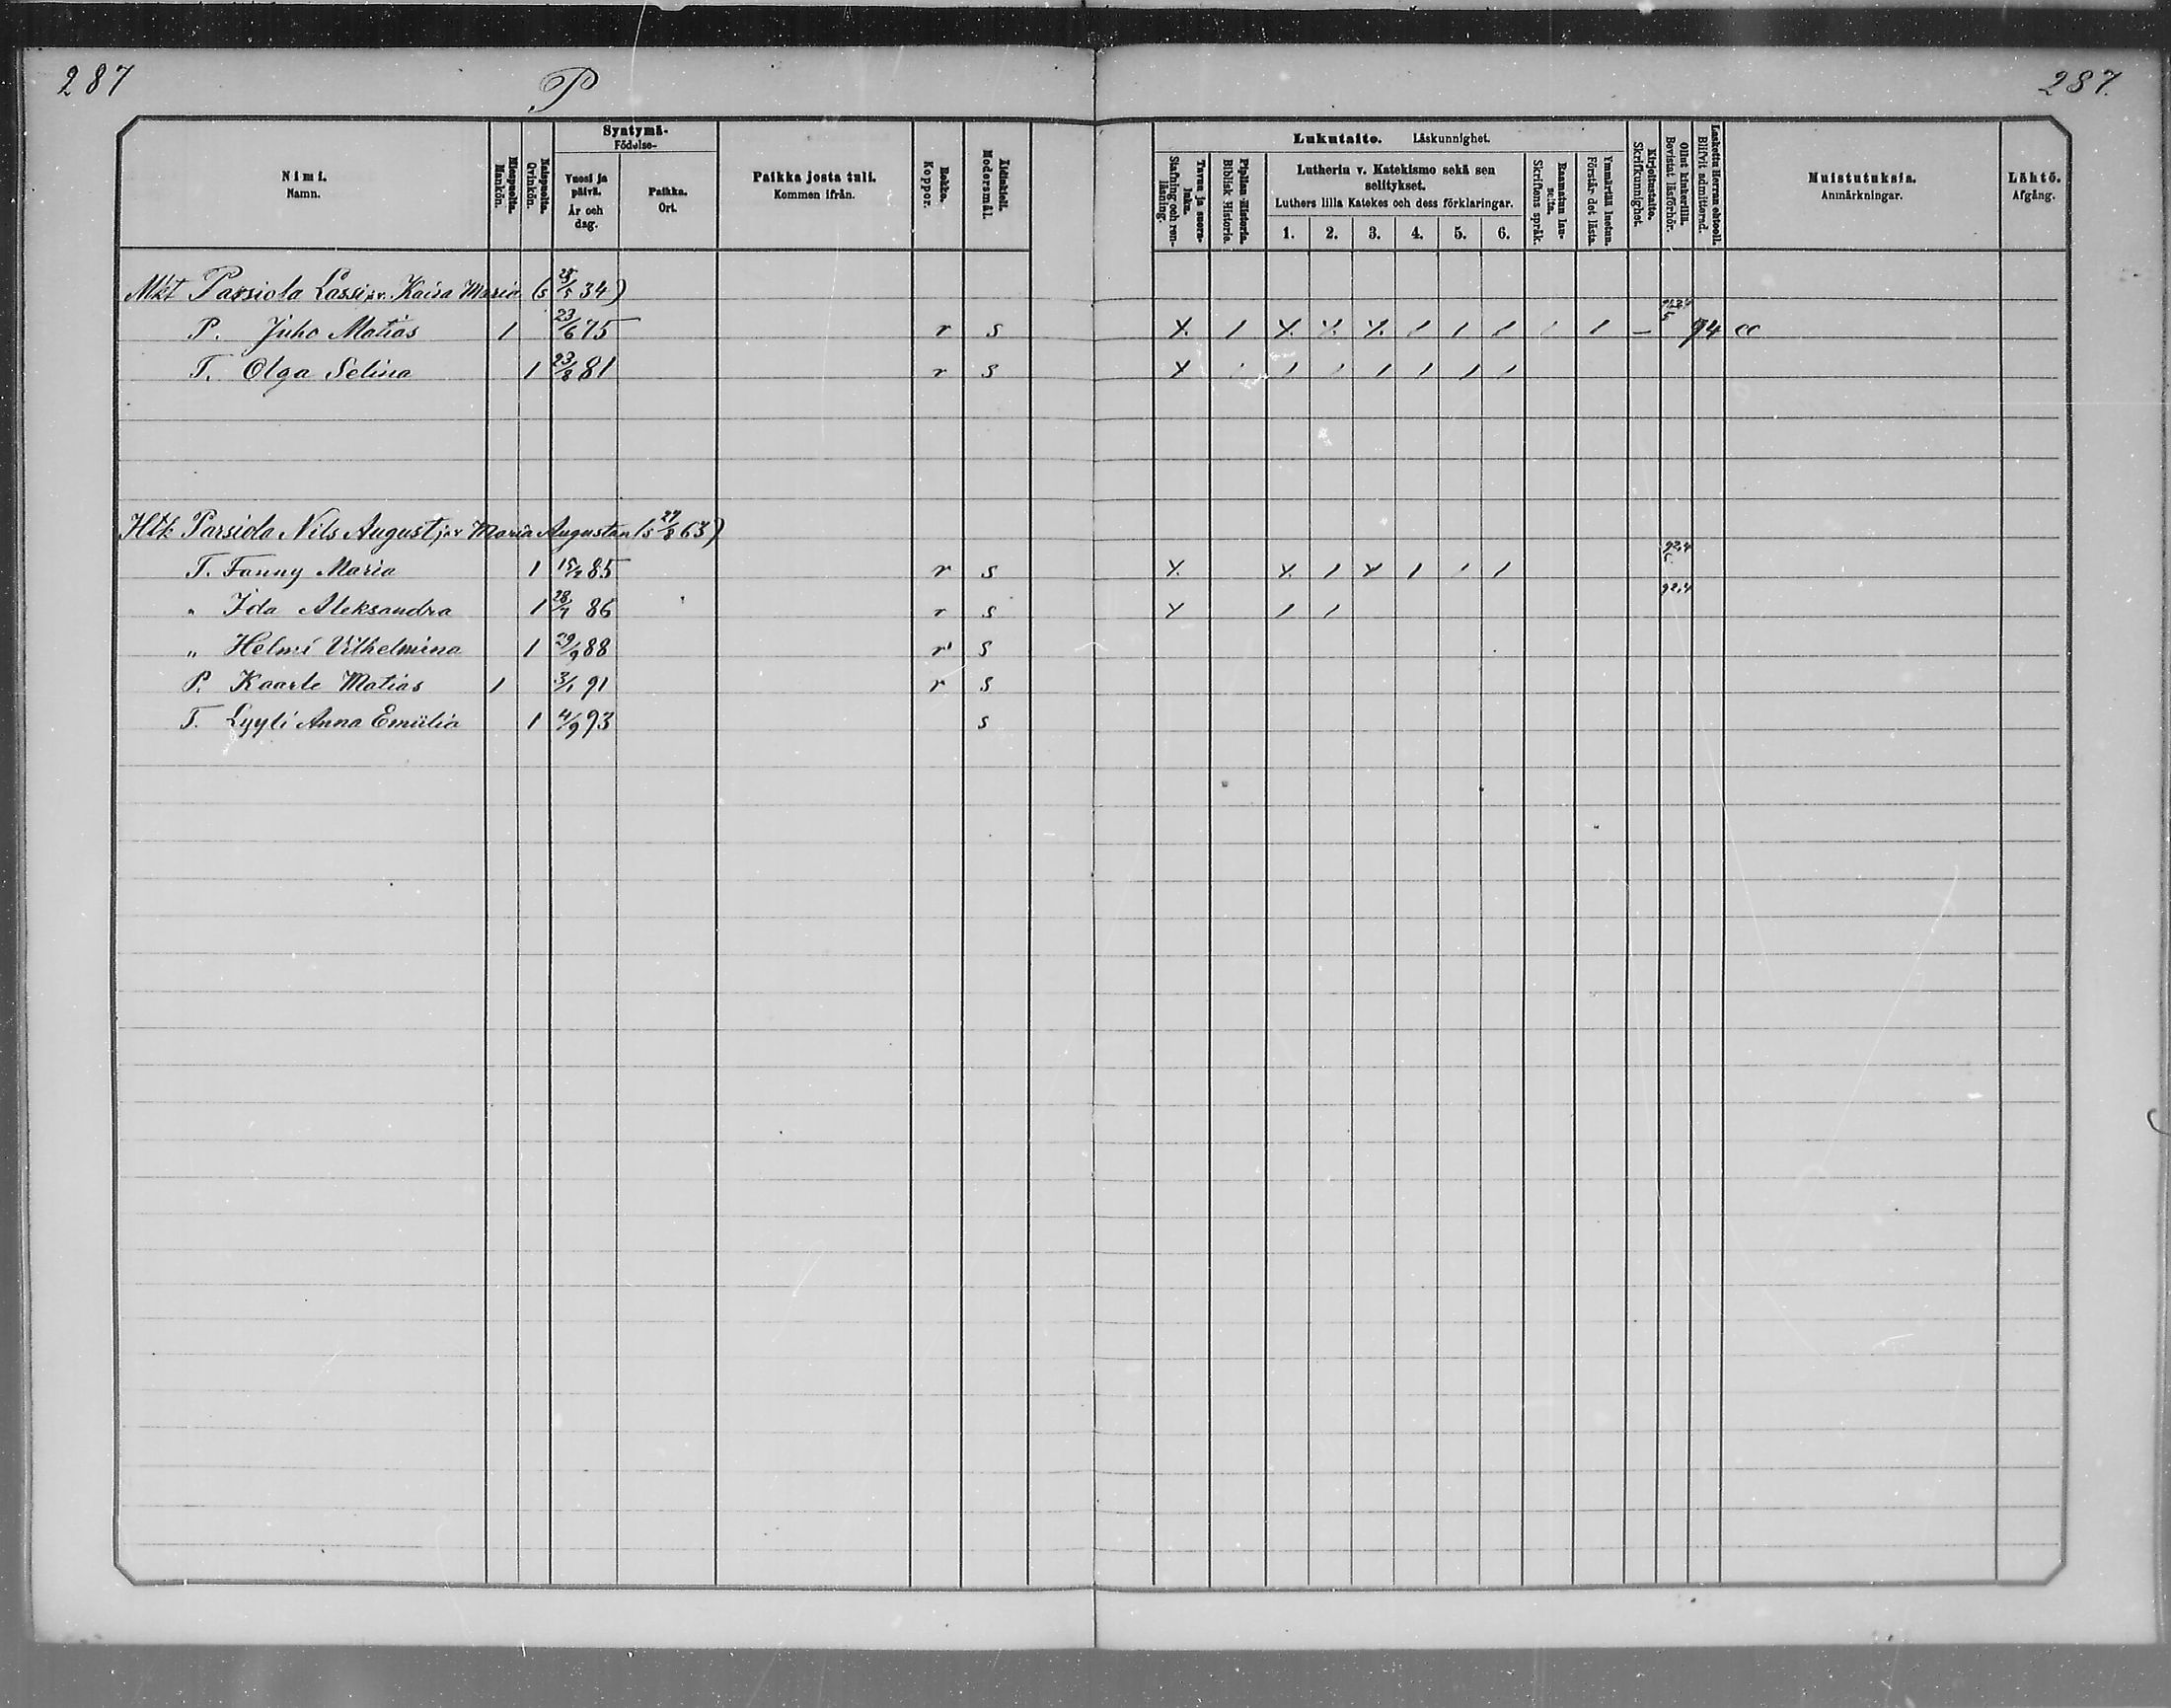 287 P 287.
Nimi. Namn.
Miespuolta. Mankön.
Naispuolta. Qvinkön.
Syntymä- Födelse-
Vuosi ja päivä. År och dag.
Paikka. Ort.
Paikka josta tuli. Kommen ifrån.
Rokko. Koppor.
Äidinkieli. Modersmål.
Lukutaito. Läskunnighet.
Tavau ja suora- luku. Stafning och ren- läsning.
Piplian Historia. Biblisk Historie.
Lutherin v. Katekismo sekä sen selitykset.
Luthers lilla Katekes och dess förklaringar.
1. 2. 3. 4. 5. 6.
Raamatun lau- seita. Skriftens språk.
Ymmärtää luetun. Förstår det lästa.
Kirjoitustaito. Skrifkunnighet.
Ollut kinkerillä. Bevistat läsförhör.
Laskettu Herran ehtooll. Blifvit admitterad.
Muistutuksia. Anmärkningar.
Lähtö. Afgång.
Mkt Parsiola Lassi ja v. Kaisa Maria (s 28/5 34)
P. Juho Matias 1 23/6 75 r s X. 1 X. X. X. 1 1 1 1 1 – 94 cc
T. Olga Selina 1 23/8 81 r s X 1 1 1 1 1 1 1
Htk Parsiola Nils August ja v Maria Augustan (s 27/8 63)
T. Fanny Maria 1 15/2 85 r s X. X. 1 X 1 1 1 92,4 5
„ Ida Aleksandra 1 28/7 86 r s X 1 1 92,4
„ Helmi Vilhelmina 1 29/9 88 r s
P. Kaarle Matias 1 3/1 91 r s
T. Lyyli Anna Emiilia 1 4/9 93 s